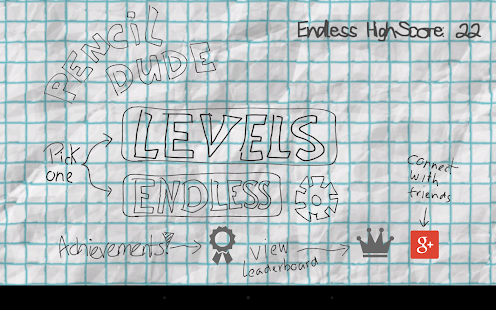 PENCIL
DUDE
Endless HighScore: 22
LEVELS
Pick
one
ENDLESS
connect
with
friends
Achievements!
View
Leaderboard
g+